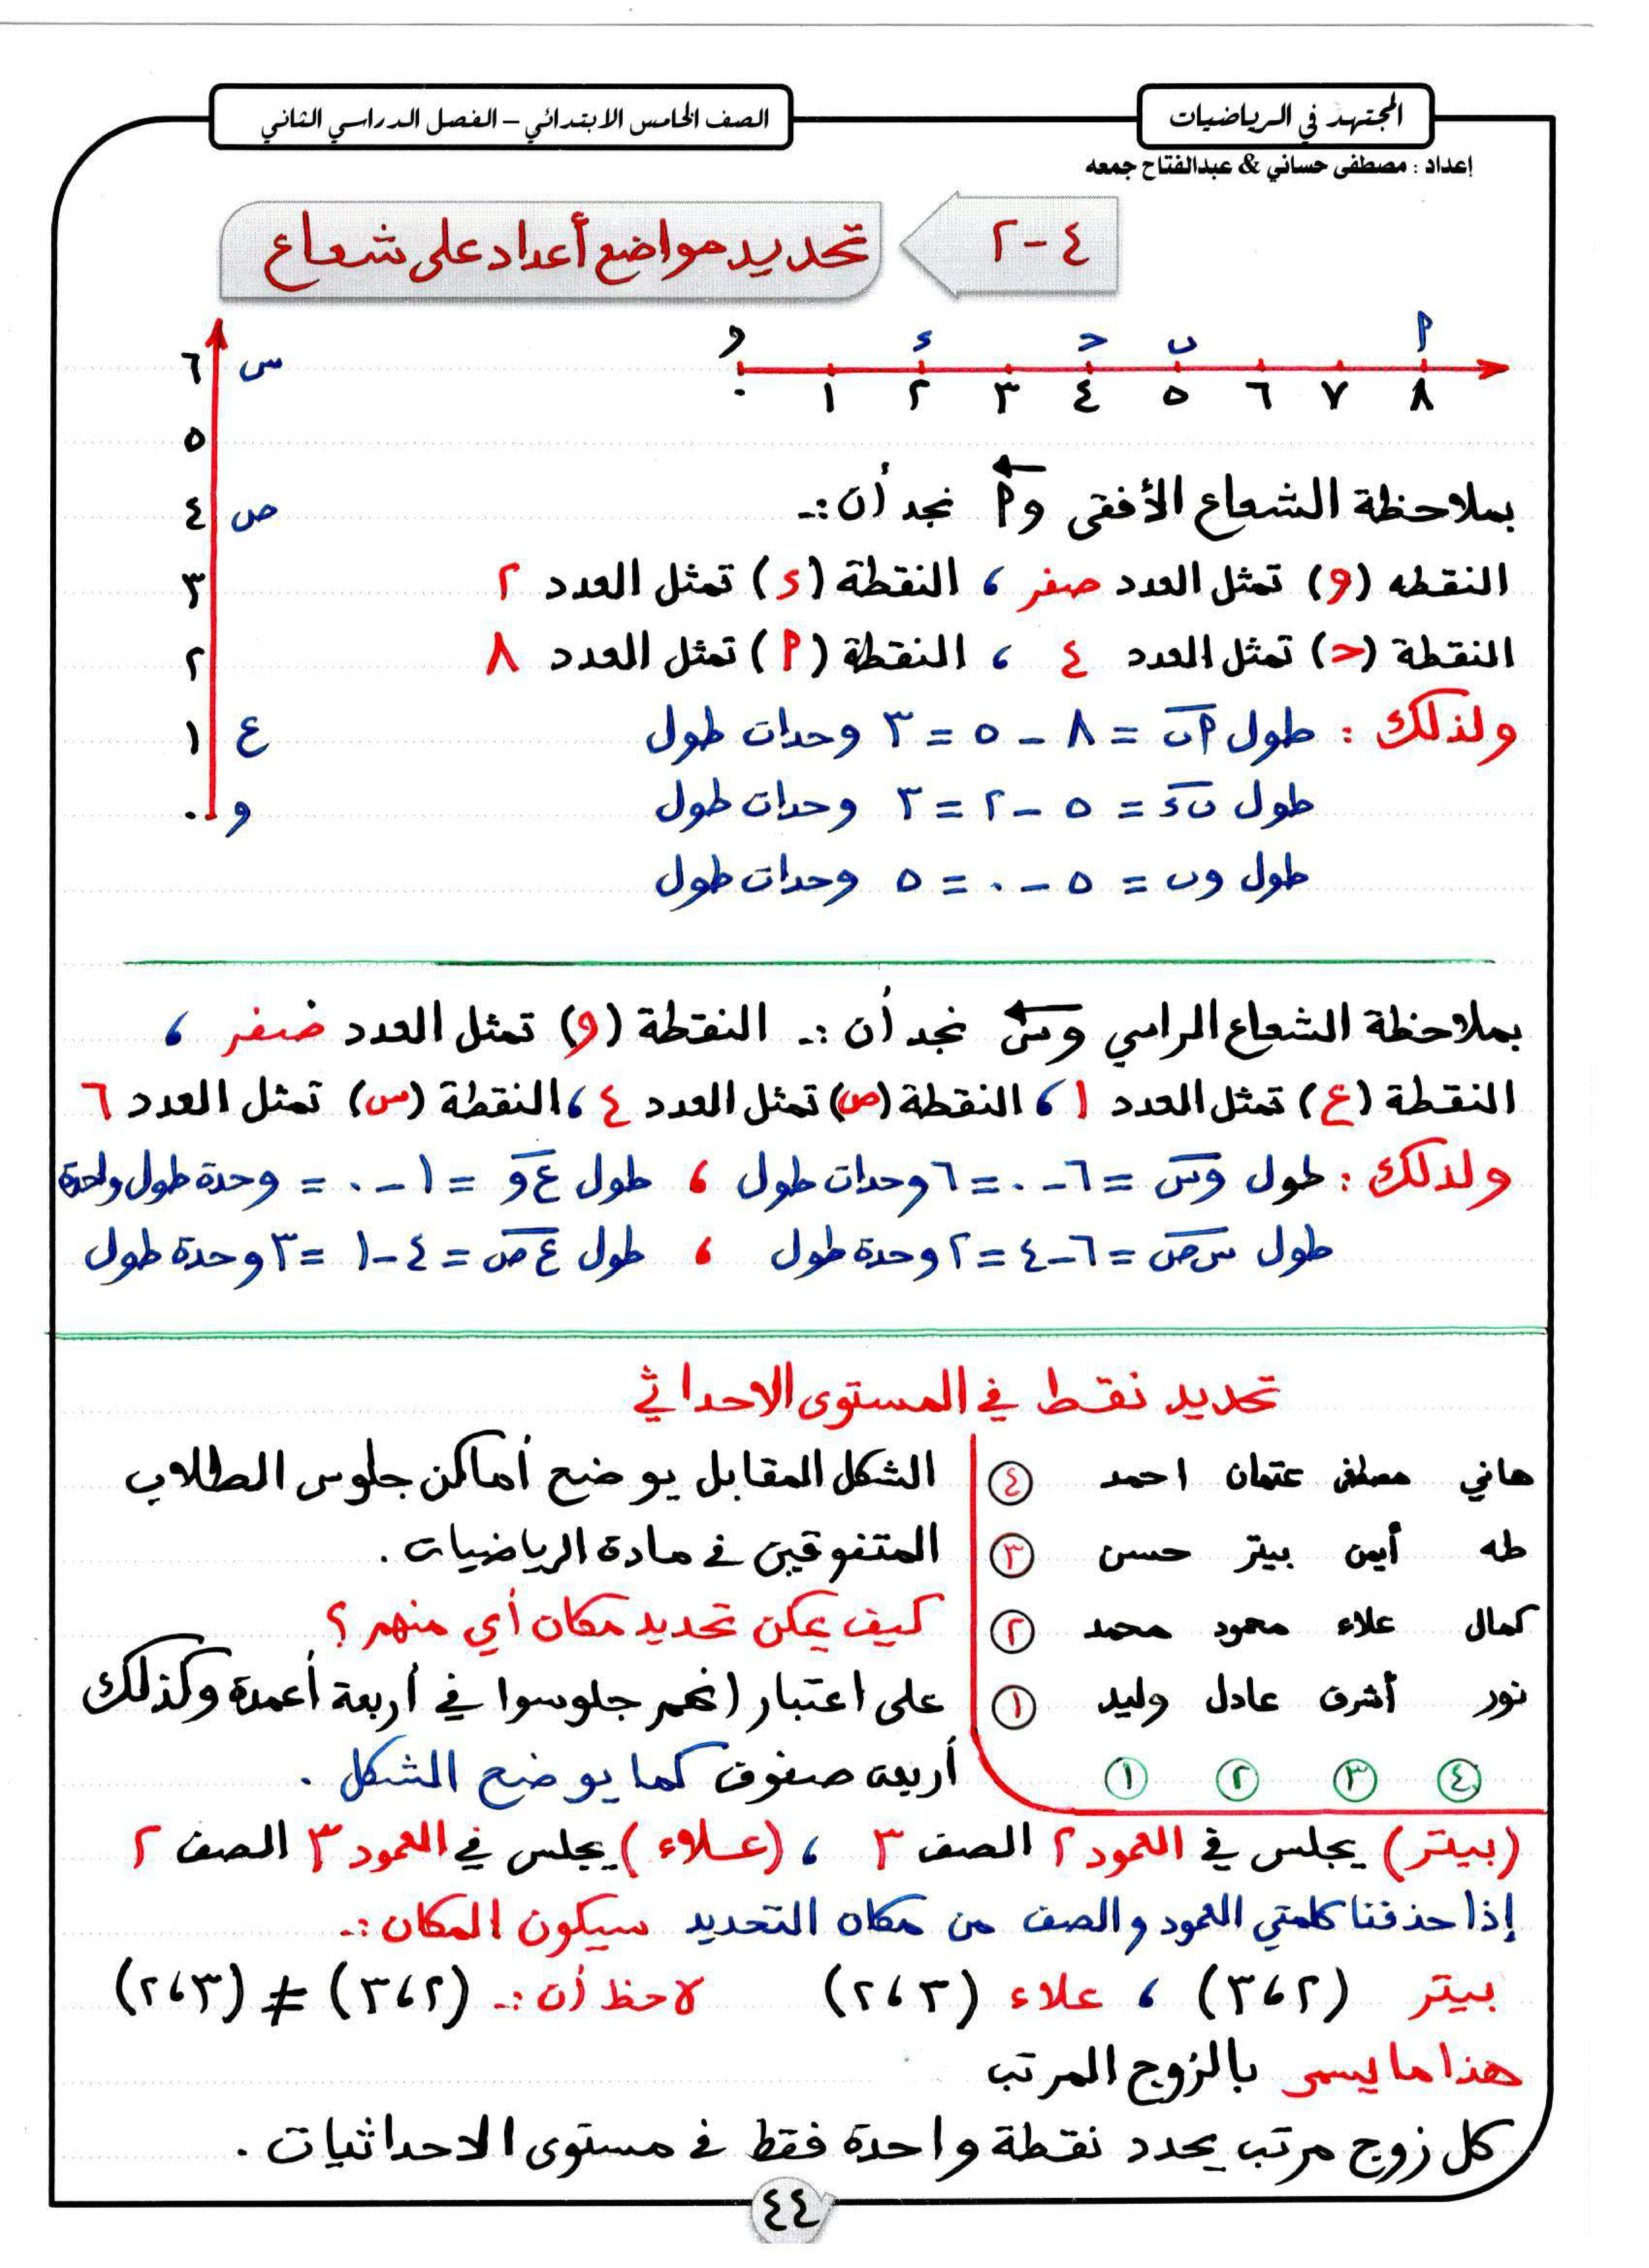 المجتهد في الرياضيات
الصف الخامس الابتدائي – الفصل الدراسي الثاني
إعداد : مصطفى حساني & عبدالفتاح جمعه
٤-٢ تحديد مواضع أعداد على شعاع
و ء ح ب أ
٠ ١ ٢ ٣ ٤ ٥ ٦ ٧ ٨
٦ س
٥
٤ ص
٣
٢
١ ع
٠ و
بملاحظة الشعاع الأفقى وأ نجد أن :-
النقطه (و) تمثل العدد صفر ، النقطة (ء) تمثل العدد ٢
النقطة (ح) تمثل العدد ٤ ، النقطة (أ) تمثل العدد ٨
ولذلك : طول أب = ٨ - ٥ = ٣ وحدات طول
طول بء = ٥ - ٢ = ٣ وحدات طول
طول وب = ٥ - ٠ = ٥ وحدات طول
بملاحظة الشعاع الراسي وس نجد أن :- النقطة (و) تمثل العدد صفر ،
النقطة (ع) تمثل العدد ١ ، النقطة (ص) تمثل العدد ٤ ، النقطة (س) تمثل العدد ٦
ولذلك : طول وس = ٦ - ٠ = ٦ وحدات طول ، طول ع و = ١ - ٠ = وحدة طول واحدة
طول س ص = ٦ - ٤ = ٢ وحدة طول ، طول ع ص = ٤ - ١ = ٣ وحدة طول
تحديد نقط في المستوى الاحداثي
هاني مصطفى عثمان احمد ٤
طه أيمن بيتر حسن ٣
كمال علاء محمود محمد ٢
نور أشرف عادل وليد ١
٤ ٣ ٢ ١
الشكل المقابل يوضح أماكن جلوس الطلاب
المتفوقين في مادة الرياضيات .
كيف يمكن تحديد مكان أي منهم ؟
على اعتبار انهم جلوسوا في أربعة أعمدة وكذلك
أربعة صفوف كما يوضح الشكل .
(بيتر) يجلس في العمود ٢ الصف ٣ ، (علاء) يجلس في العمود ٣ الصف ٢
إذا حذفنا كلمتي العمود والصف من مكان التحديد سيكون المكان :-
بيتر (٢،٣) ، علاء (٣،٢) لاحظ أن :- (٢،٣) ≠ (٣،٢)
هذا ما يسمى بالزوج المرتب
كل زوج مرتب يحدد نقطة واحدة فقط في مستوى الاحداثيات .
٤٤